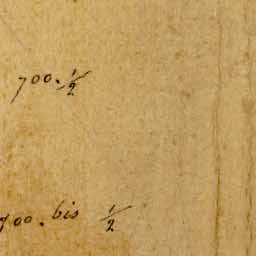 700. 1/2
700. bis 1/2